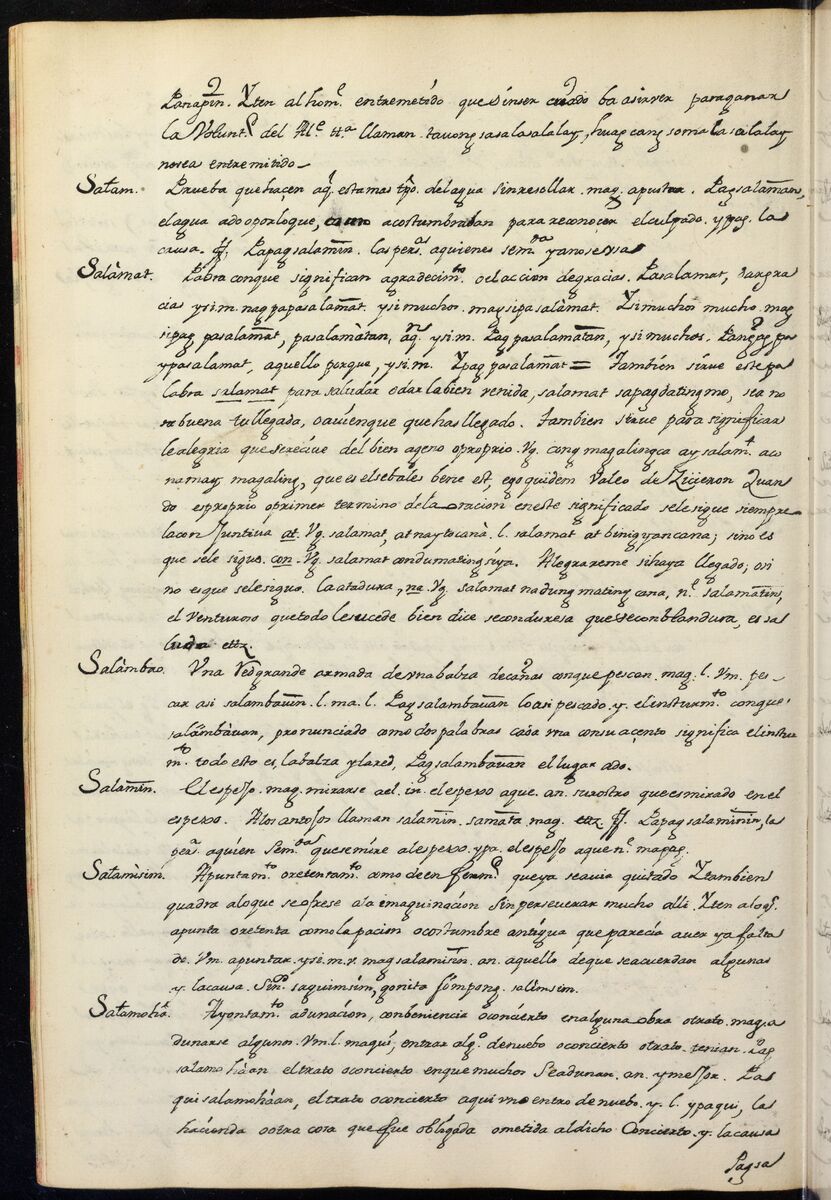 Panapin. Yten al hom.e entremetido que sin ser criado ba a servir para ganar
la Volunt.d del Al.e &.a llaman. tauong sasalasalalay, huag cang somalasalalay
no sea entremitido—
Salam. Prueba que haçen aq.l esta mas tpõ. del agua sin resollar. mag. apustar. Pagsalaman,
el agua ado o por lo que, acostumbraban para reconoçer el culpado. y pag. la
causa. Papagsalamin. las pers.as a quienes
Salàmat. Pabra con que significan agradecim.to o el accion de gracias. Pasalamat, dar gra
cias y si m. nagpapasalamat. y si muchos. magsipasalàmat. Y si muchos mucho. mag
sipag pasalamat, pasalamàtan, aq.l y si m. Pag pasalamatan, y si muchos.
ypasalamat, aquello porque, y si m. Ypagpasalamat = Tambien sirve este pa
labra salamat para saludar o dar la bien venida, salamat sa pagdating mo, sea no
rabuena tu llegada, o a bien que has llegado. Tambien sirve para significar
le alegria que se reciue del bien ageno o proprio. Vg. cong magalingca ay salam.t aco
namay magaling, que es el sebales bene est, ego quidem Valeo de Ziçeron Quan
do es proprio o primer termino de la oracion en este significado se le sigue siempre
la conjuntiua at. Vg. salamat, at naytocanà. l. salamat at binigyan cana; sino es
que se le sigue. con. Vg. salamat con dumating siya. Alegrareme si haya llegado; o si
no es que se le sigue. la atadura, na Vg. salamat na dungmatingcana, n.e salamatin,
el venturoso que todo le sucede bien dice se con duresa que se con blandura, es sa
luda etz.
Salàmbao. Vna Red grande armada de vna balza de cañas con que pescan. mag. l. Vm. pes-
car asi salambauin. l. ma. l. Pagsalambauan lo asi pescado. y. el insturm.to con que.
salàmbàuan, pronunciado como dos palabras cada vna con su açento significa el instru
m.to todo esto es, la balza y la red, Pagsalambauan el lugar ado.
Salamin. El espejo. mag. mirarse a el. in. el espexo a que. an. su rostro que es mirado en el
espexo. A los antojos llaman salamin. samata. mag. etz Papagsalaminin, la
per.a a quien que se mire al espexo. ypa. el espejo a que n.e mapag.
Salamisim. Apuntam.to o retentam.to como de enferm.d que ya se auia quitado Ytambien
quadra a lo que se ofrese a la imaguinaçion sin perseuerar mucho alli. Yten a lo q.e
apunta o retenta como la pacion o costumbre antigua que parecia auer ya falta
do. Vm. apuntar. y si. m. v. magsalamisin. an. aquello de que se acuerdan algunas
y. la causa. Sin.o saguimsim, gonita sompong. salimsim.
Salamoha. Ayontam.to adunaçion, conbeniencia o concierto en alguna obra o trato. mag. a
dunarse algunos. Vm. l. maqui, entrar alg.o de nuebo o concierto o trato. tenian. Pag
salamohàan el trato o concierto en que muchos se adunan. an. y mejor. Pa
qui salamohàan, el trato o concierto a qui vno entro de nuebo. y. l. ypaqui, la
haçienda o otra cosa que fue obligada o metida al dicho Concierto. y. la causa
Pagsa